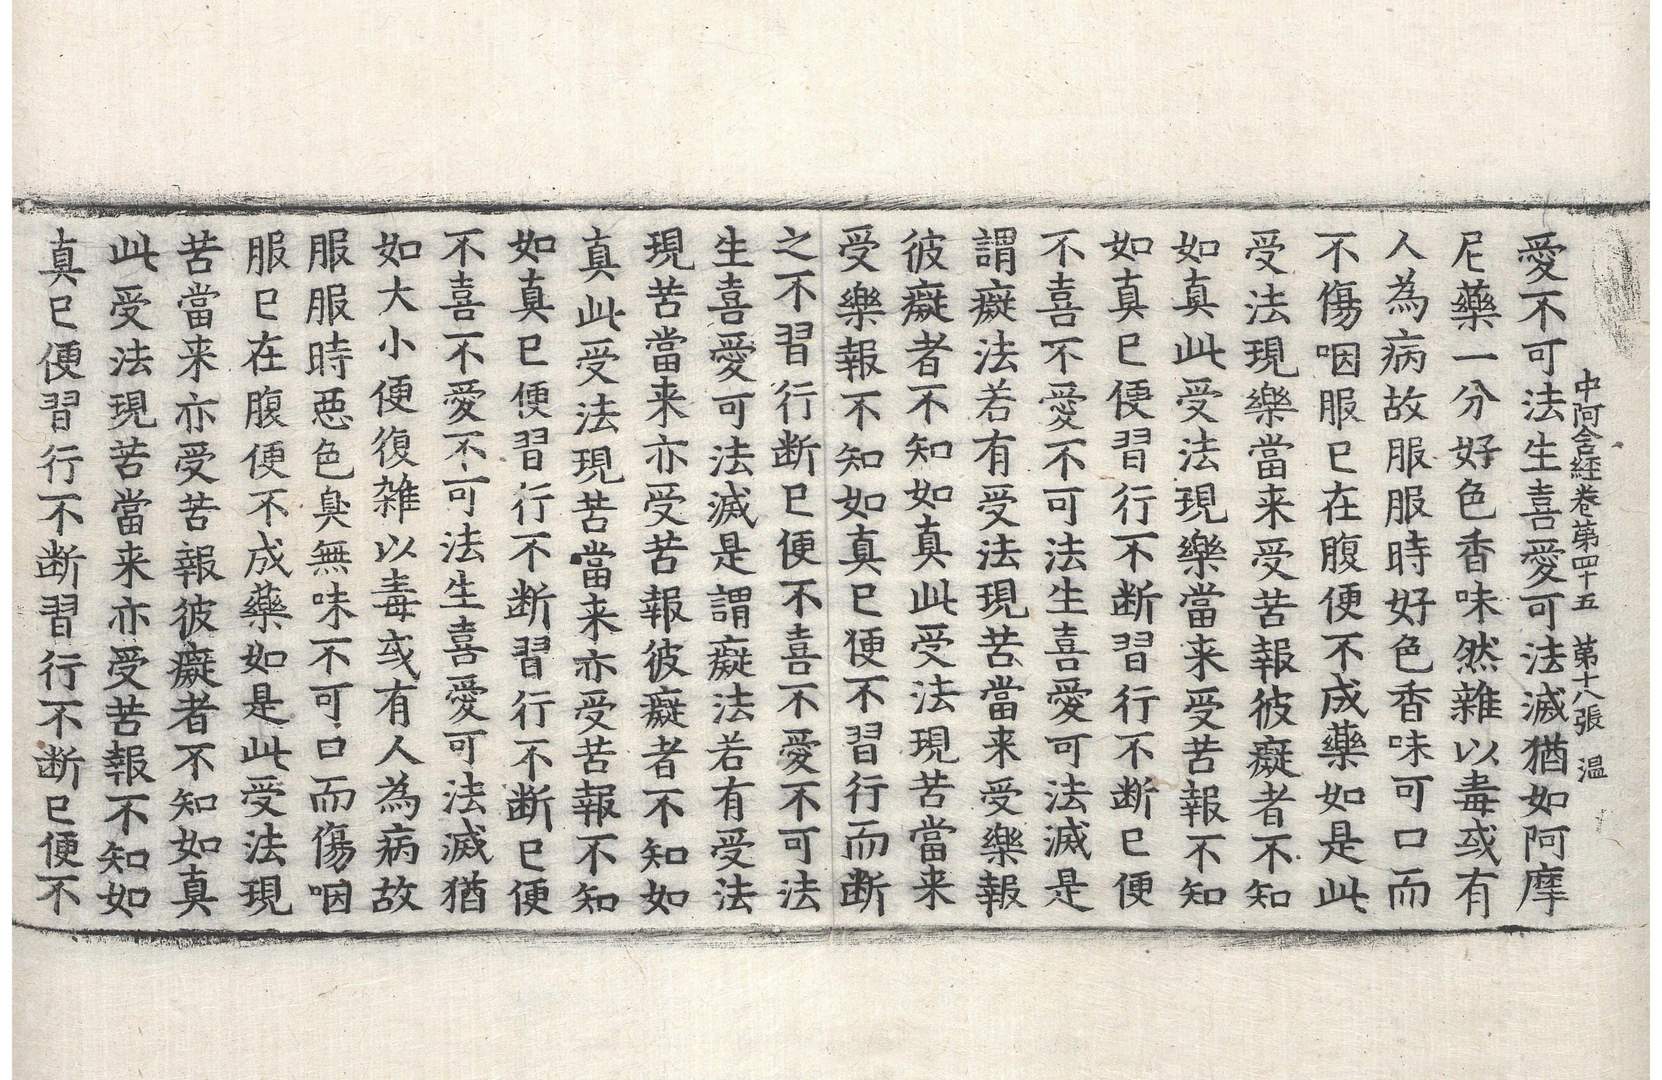 中阿含經卷第四十五　第十八張　温
愛不可法生喜愛可法滅猶如阿摩
尼藥一分好色香味然雜以毒或有
人為病故服服時好色香味可口而
不傷咽服已在腹便不成藥如是此
受法現樂當来受苦報彼癡者不知
如真此受法現樂當来受苦報不知
如真已便習行不断習行不断已便
不喜不愛不可法生喜愛可法滅是
謂癡法若有受法現苦當来受樂報
彼癡者不知如真此受法現苦當来
受樂報不知如真已便不習行而断
之不習行断已便不喜不愛不可法
生喜愛可法滅是謂癡法若有受法
現苦當来亦受苦報彼癡者不知如
真此受法現苦當来亦受苦報不知
如真已便習行不断習行不断已便
不喜不愛不可法生喜愛可法滅猶
如大小便復雑以毒或有人為病故
服服時惡色臭無味不可口而傷咽
服已在腹便不成藥如是此受法現
苦當来亦受苦報彼癡者不知如真
此受法現苦當来亦受苦報不知如
真已便習行不断習行不断已便不